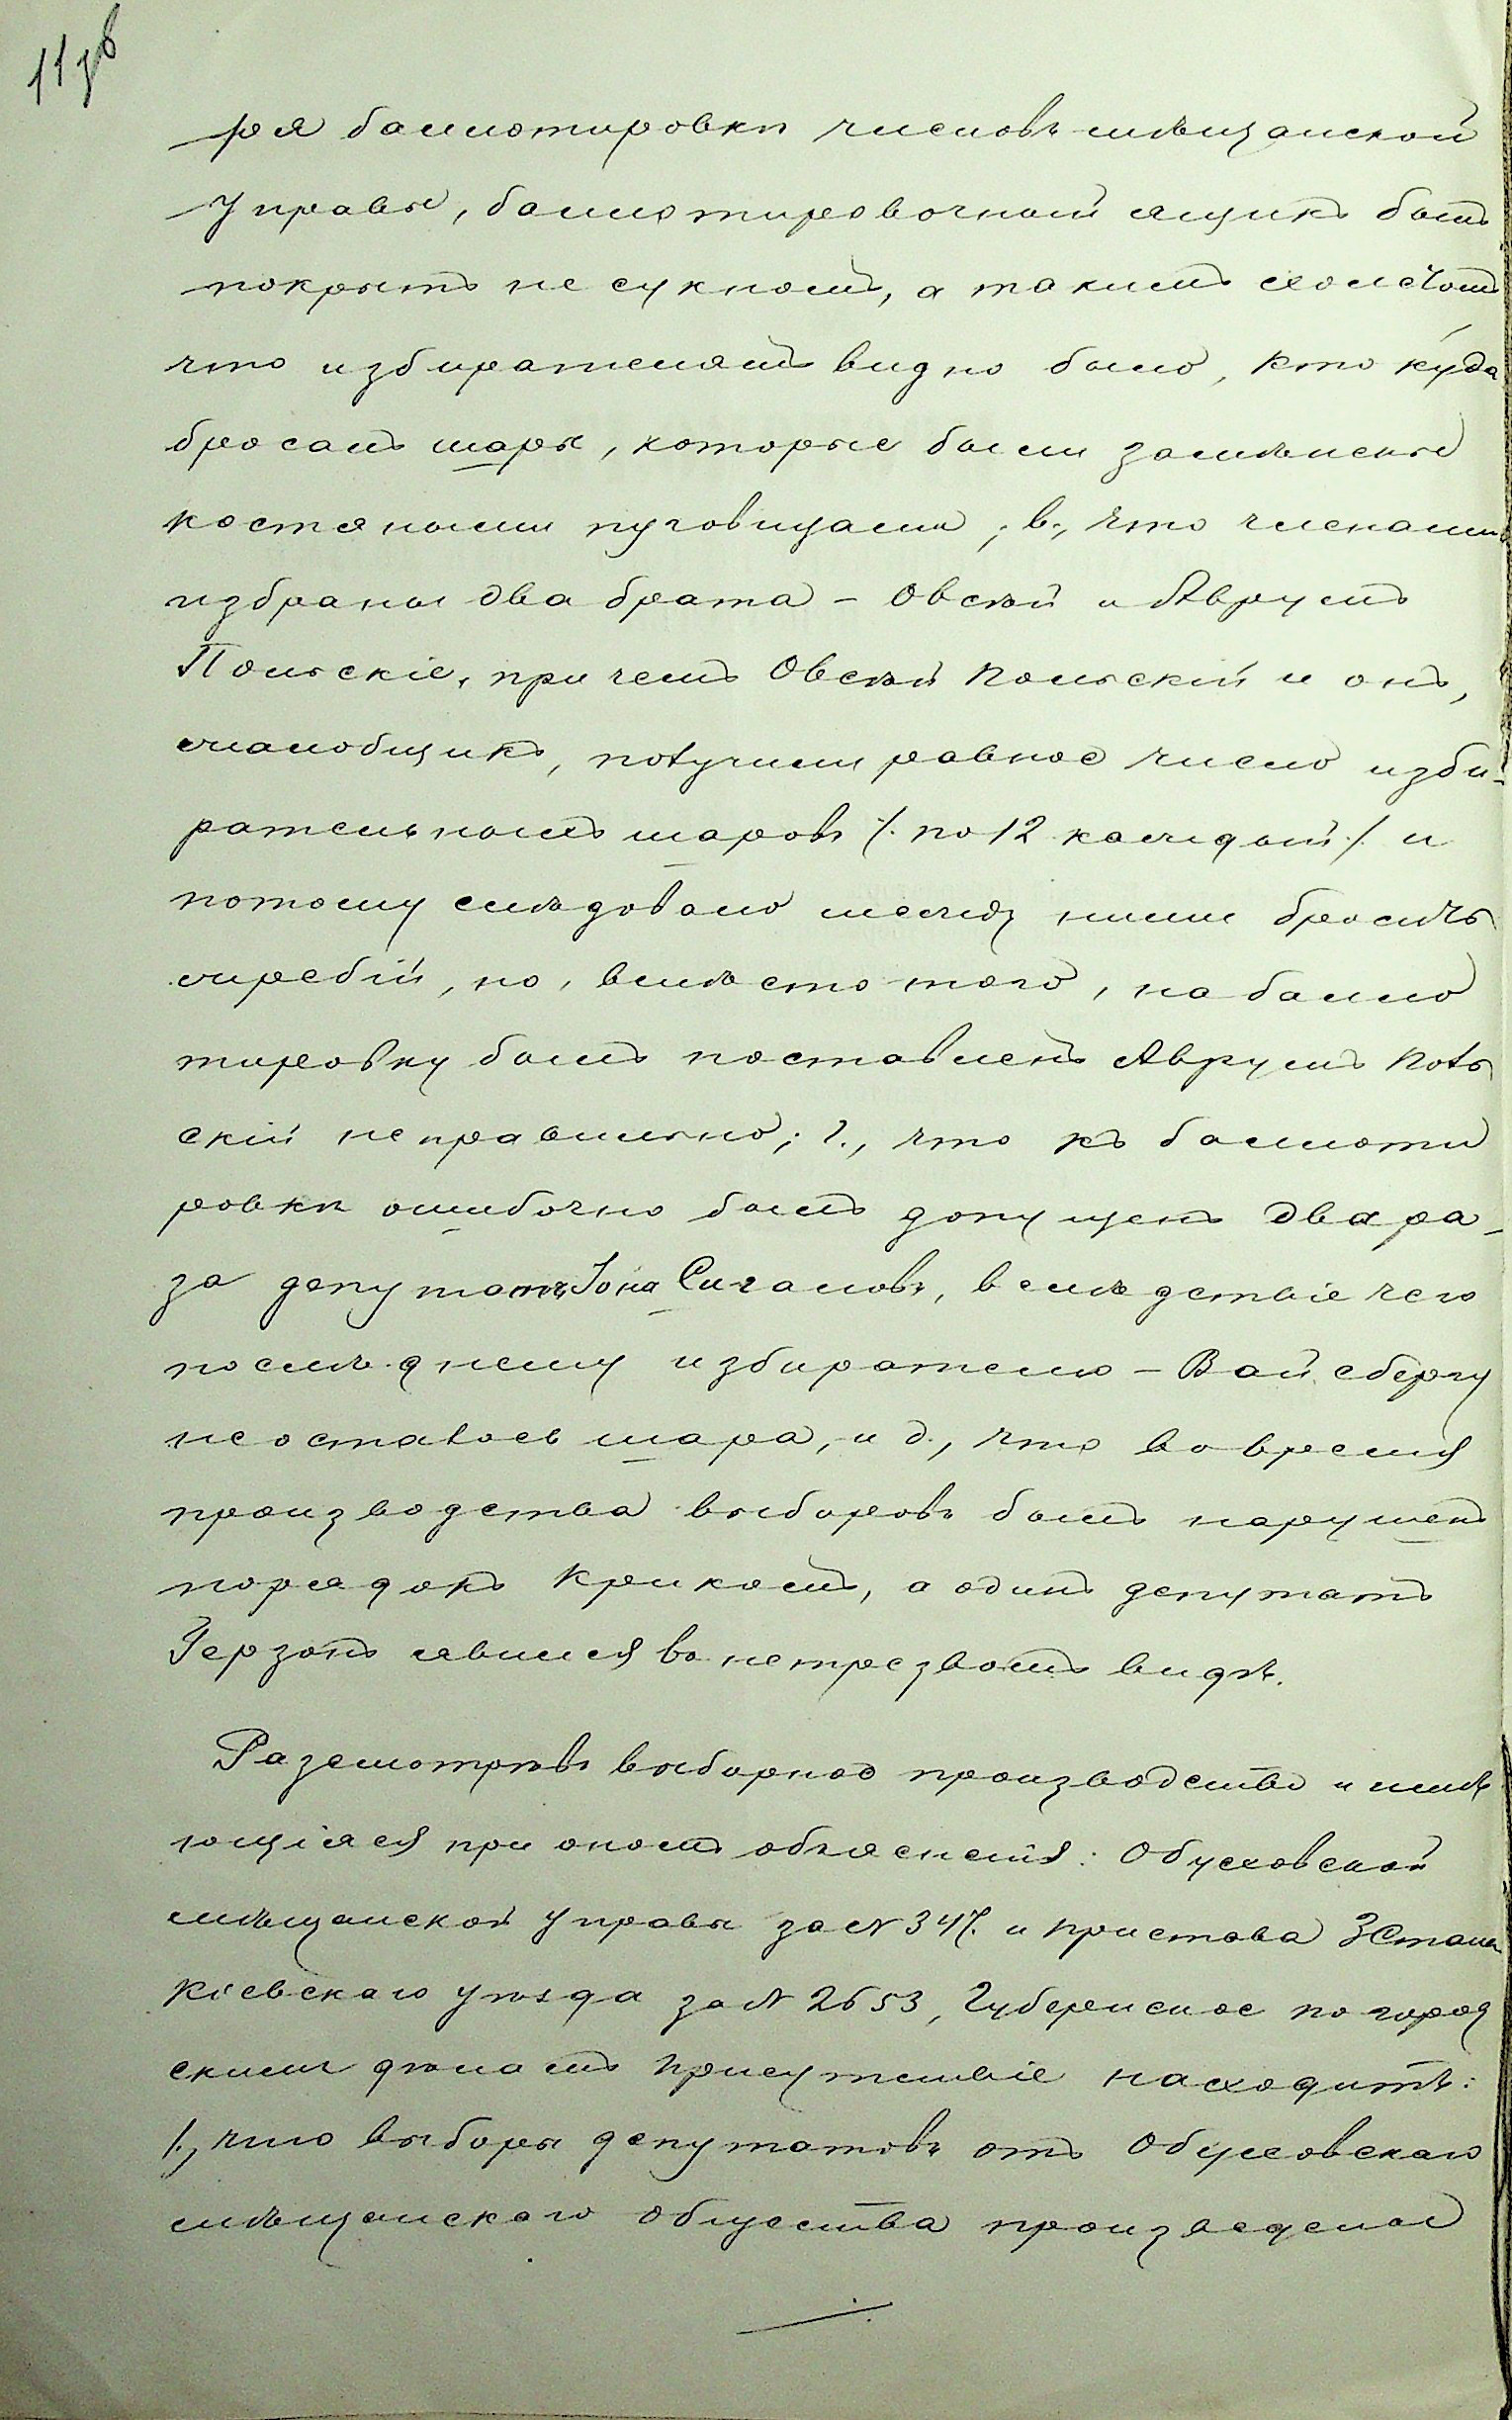 11 зв
ря баллотировки членовъ мѣщанской
управы, баллотировочный ящикъ былъ
покрытъ не сукномъ, а такимъ холстомъ
что избирателямъ видно было, кто куда
бросалъ шары, которые были замѣнены
костяными пуговицами; в., что членами
избраны два брата – Овсѣй и Аврумъ
Польскіе, при чемъ Овсѣй Польскій и онъ,
жалобщикъ, получили равное число изби-
рательныхъ шаровъ /. по 12 каждый ./ и
потому слѣдовало между ними бросить
жребій, но, вмѣсто того, на балло
тировку былъ поставленъ Аврумъ Поль
скій неправильно; г., что къ баллоти
ровки ошибочно былъ допущенъ два ра-
за депутатъ Іона Сигаловъ, вслѣдствіе чего
послѣднему избирателю – Вайсбергу
не осталось шара, и д., что во время
производства выборовъ былъ нарушенъ
порядокъ крикомъ, а одинъ депутатъ
Герзонъ явился въ нетрезвомъ видѣ.
Разсмотрѣвъ выборное производство и имѣ
ющіяся при ономъ объясненія: Обуховской
мѣщанской управы за № 347. и пристава 3 Стана
Кіевскаго уѣзда за № 2653, Губернское по город
скимъ дѣламъ присутствіе находитъ:
1., что выборы депутатовъ отъ Обуховскаго
мѣщанскаго общества произведены